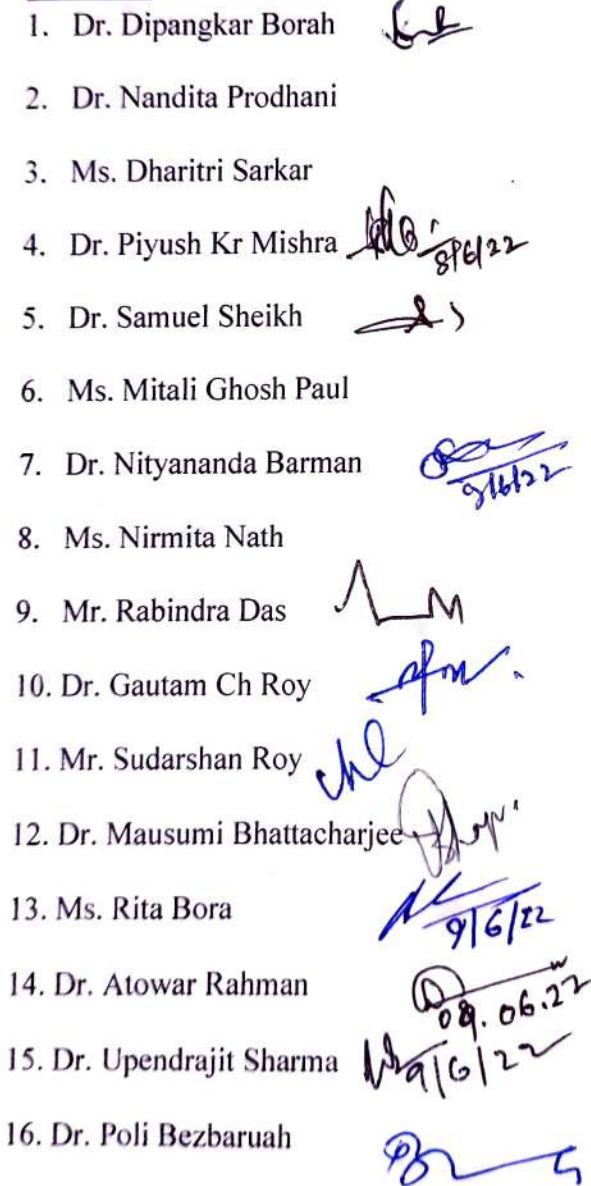 1. Dr. Dipangkar Borah
2. Dr. Nandita Prodhani
3. Ms. Dharitri Sarkar
4. Dr. Piyush Kr Mishra 8/6/22
5. Dr. Samuel Sheikh
6. Ms. Mitali Ghosh Paul
7. Dr. Nityananda Barman 9/6/22
8. Ms. Nirmita Nath
9. Mr. Rabindra Das
10. Dr. Gautam Ch Roy
11. Mr. Sudarshan Roy
12. Dr. Mausumi Bhattacharjee
13. Ms. Rita Bora 9/6/22
14. Dr. Atowar Rahman
15. Dr. Upendrajit Sharma 9/6/22
16. Dr. Poli Bezbaruah